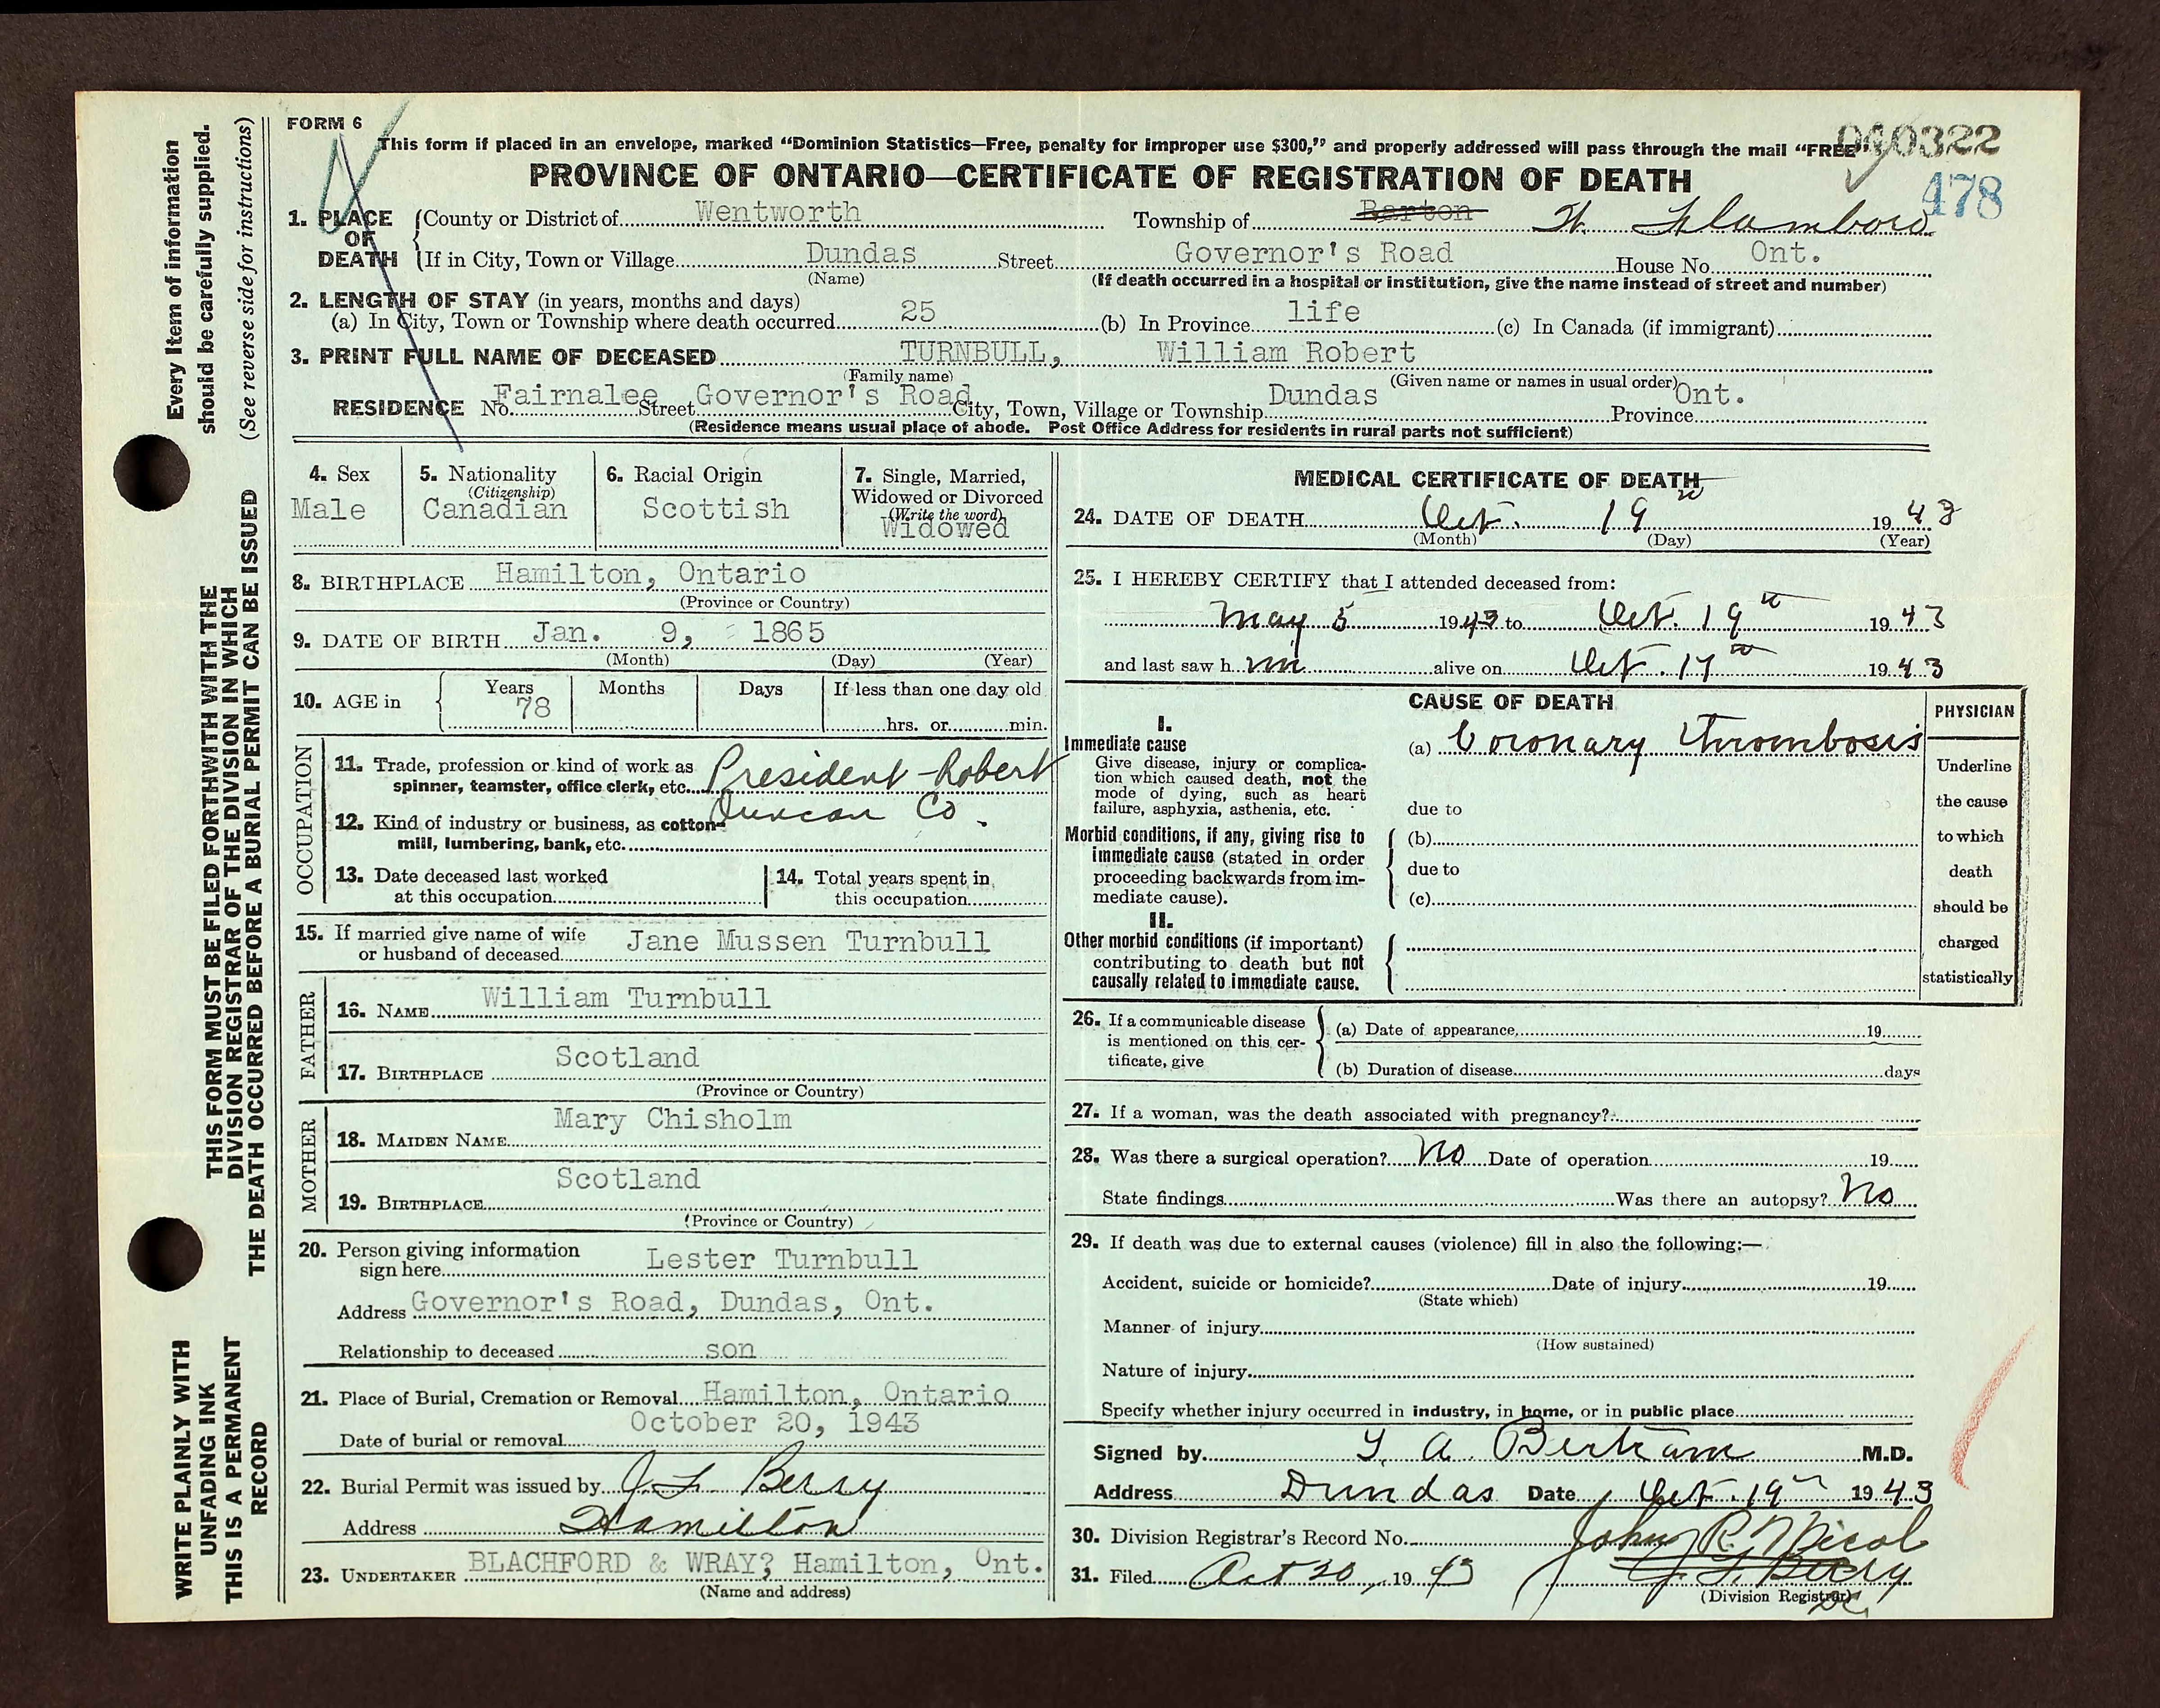 FORM 6
This form if placed in an envelope, marked “Dominion Statistics—Free, penalty for improper use $300,” and properly addressed will pass through the mail “FREE”
0322
478
PROVINCE OF ONTARIO—CERTIFICATE OF REGISTRATION OF DEATH
1. PLACE OF DEATH { County or District of Wentworth Township of Barton W. Flamboro
If in City, Town or Village Dundas Street Governor's Road House No. Ont.
(Name) (If death occurred in a hospital or institution, give the name instead of street and number)
2. LENGTH OF STAY (in years, months and days)
(a) In City, Town or Township where death occurred 25 (b) In Province life (c) In Canada (if immigrant)
3. PRINT FULL NAME OF DECEASED TURNBULL, William Robert
(Family name) (Given name or names in usual order)
RESIDENCE No. Fairnalee Street Governor's Road City, Town, Village or Township Dundas Province Ont.
(Residence means usual place of abode. Post Office Address for residents in rural parts not sufficient)
4. Sex
Male
5. Nationality
(Citizenship)
Canadian
6. Racial Origin
Scottish
7. Single, Married,
Widowed or Divorced
(Write the word)
Widowed
8. BIRTHPLACE Hamilton, Ontario
(Province or Country)
9. DATE OF BIRTH Jan. 9, 1865
(Month) (Day) (Year)
10. AGE in { Years Months Days If less than one day old
78 hrs. or min.
OCCUPATION
11. Trade, profession or kind of work as
spinner, teamster, office clerk, etc. President - Robert
Duncan Co.
12. Kind of industry or business, as cotton-
mill, lumbering, bank, etc.
13. Date deceased last worked
at this occupation
14. Total years spent in
this occupation
15. If married give name of wife
or husband of deceased Jane Mussen Turnbull
FATHER
16. NAME William Turnbull
17. BIRTHPLACE Scotland
(Province or Country)
MOTHER
18. MAIDEN NAME Mary Chisholm
19. BIRTHPLACE Scotland
(Province or Country)
20. Person giving information
sign here Lester Turnbull
Address Governor's Road, Dundas, Ont.
Relationship to deceased son
21. Place of Burial, Cremation or Removal Hamilton, Ontario
Date of burial or removal October 20, 1943
22. Burial Permit was issued by J. L. Berry
Address Hamilton
23. UNDERTAKER BLACHFORD & WRAY? Hamilton, Ont.
(Name and address)
MEDICAL CERTIFICATE OF DEATH
24. DATE OF DEATH Oct. 19th 1943
(Month) (Day) (Year)
25. I HEREBY CERTIFY that I attended deceased from:
May 5 1943 to Oct. 19th 1943
and last saw h im alive on Oct. 17th 1943
CAUSE OF DEATH
I.
Immediate cause (a) Coronary Thrombosis
Give disease, injury or complica-
tion which caused death, not the
mode of dying, such as heart
failure, asphyxia, asthenia, etc.
due to
Morbid conditions, if any, giving rise to
immediate cause (stated in order
proceeding backwards from im-
mediate cause).
(b)
due to
(c)
II.
Other morbid conditions (if important)
contributing to death but not
causally related to immediate cause.
PHYSICIAN
Underline
the cause
to which
death
should be
charged
statistically
26. If a communicable disease
is mentioned on this cer-
tificate, give
(a) Date of appearance 19
(b) Duration of disease days
27. If a woman, was the death associated with pregnancy?
28. Was there a surgical operation? No Date of operation 19
State findings Was there an autopsy? No
29. If death was due to external causes (violence) fill in also the following:—
Accident, suicide or homicide? Date of injury 19
(State which)
Manner of injury
(How sustained)
Nature of injury
Specify whether injury occurred in industry, in home, or in public place
Signed by T. A. Bertram M.D.
Address Dundas Date Oct. 19th 1943
30. Division Registrar's Record No.
John R. Nicol
31. Filed Oct 20 1943 J. L. Berry
(Division Registrar)
Every Item of information
should be carefully supplied.
(See reverse side for instructions)
THIS FORM MUST BE FILED FORTHWITH WITH THE
DIVISION REGISTRAR OF THE DIVISION IN WHICH
THE DEATH OCCURRED BEFORE A BURIAL PERMIT CAN BE ISSUED
WRITE PLAINLY WITH
UNFADING INK
THIS IS A PERMANENT
RECORD